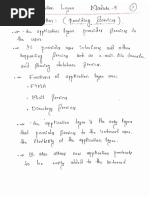 Application Layer Module-5 ①
(Providing Services)
→ An application layer provides services to
the users.
→ It provides user interfaces and other
supporting services such as e-mail, file transfer
and sharing database services.
→ Functions of application layer are:
- FTAM
- Mail Services
- Directory Services
→ An application layer is the only layer
that provides services to the internet user,
The flexibility of the application layer.
→ It also allows new application protocols
to be easily added to the internet